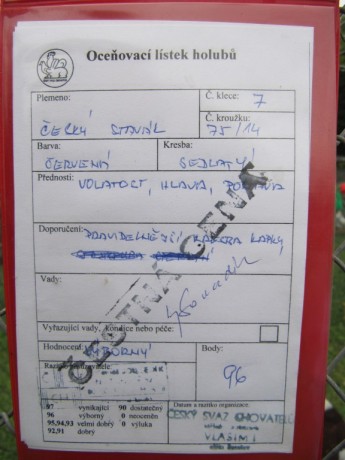 Oceňovací lístek holubů
Plemeno:
Č. klece: 7
ČESKÝ STAVÁK
Č. kroužku:
75/14
Barva:
Kresba:
ČERVENÁ
SEDLATÝ
Přednosti:
VOLATOST, HLAVA, POSTAVA
Doporučení:
PRAVIDELNĚJŠÍ KRESBA
ČESTNÁ CENA
Vady:
Vyřazující vady, kondice nebo péče:
Hodnocení:
VÝBORNÝ
Body:
96
97 vynikající 90 dostatečný
96 výborný 0 neoceněn
95,94,93 velmi dobrý 0 výluka
92,91 dobrý
Datum a razítko organizace:
ČESKÝ SVAZ CHOVATELŮ
VLAŠIM